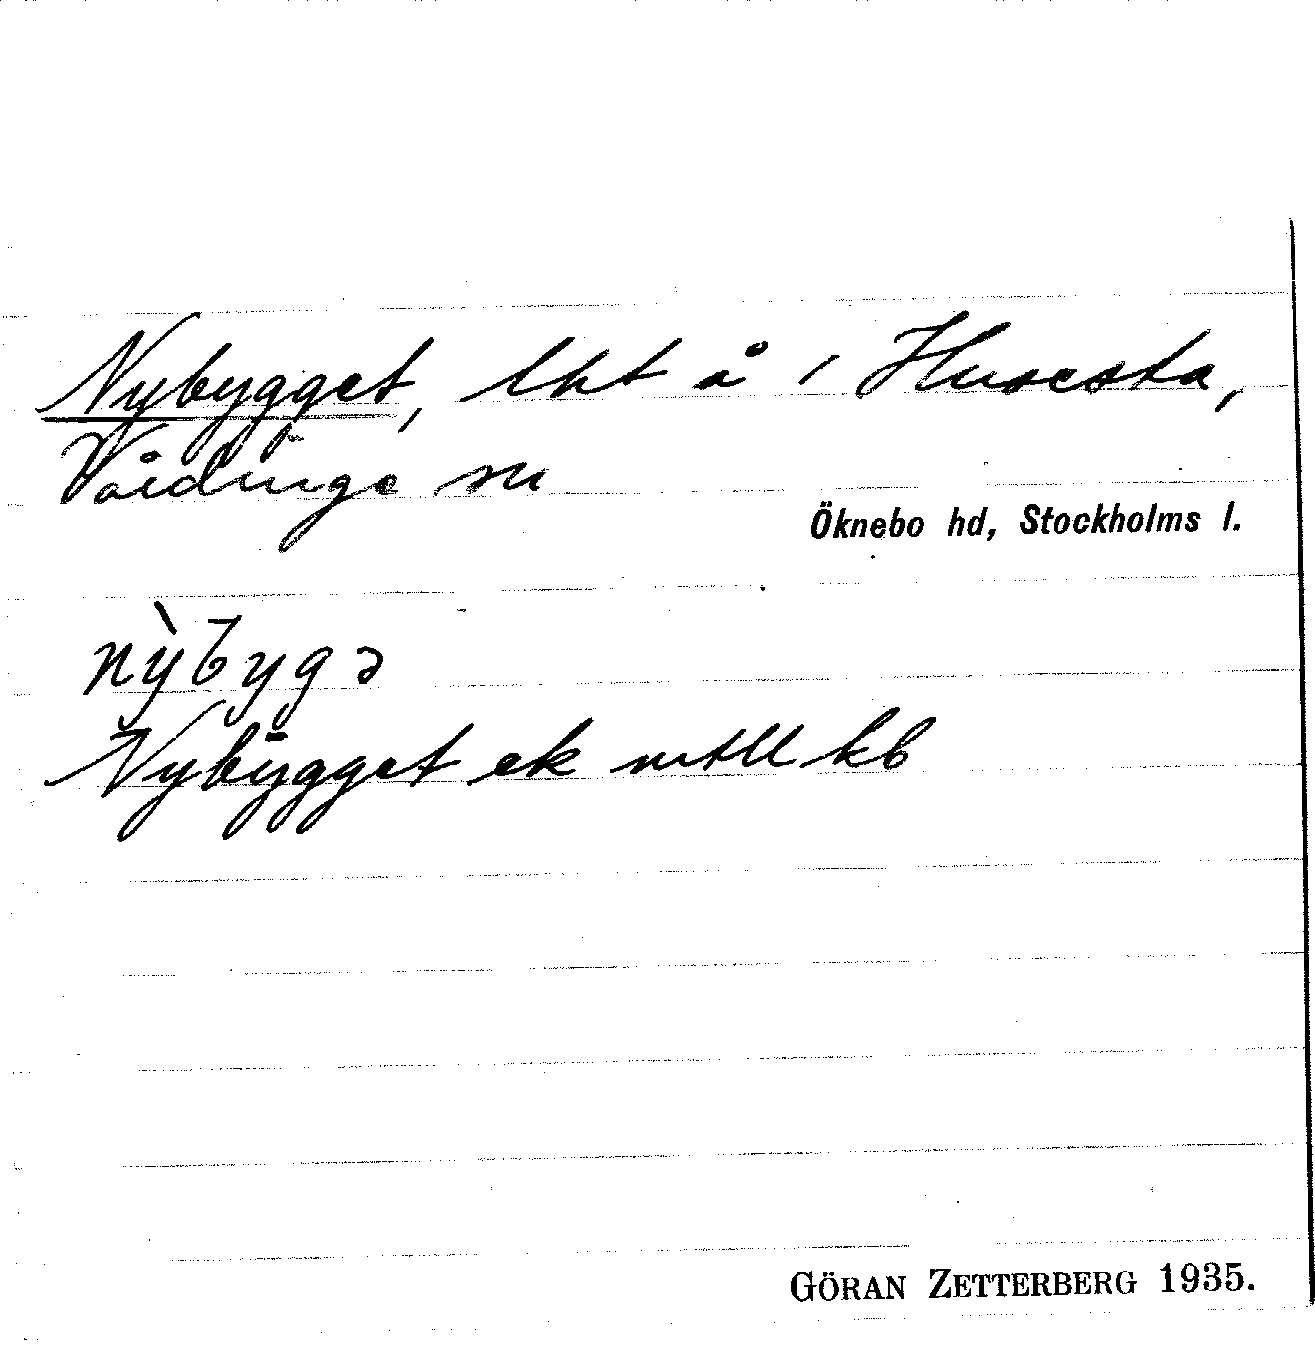 Nybygget, lht å 1 Husesta,
Vårdinge sn
Öknebo hd, Stockholms l.
nỳbygə
Nybygget ek mtll kb
GÖRAN ZETTERBERG 1935.